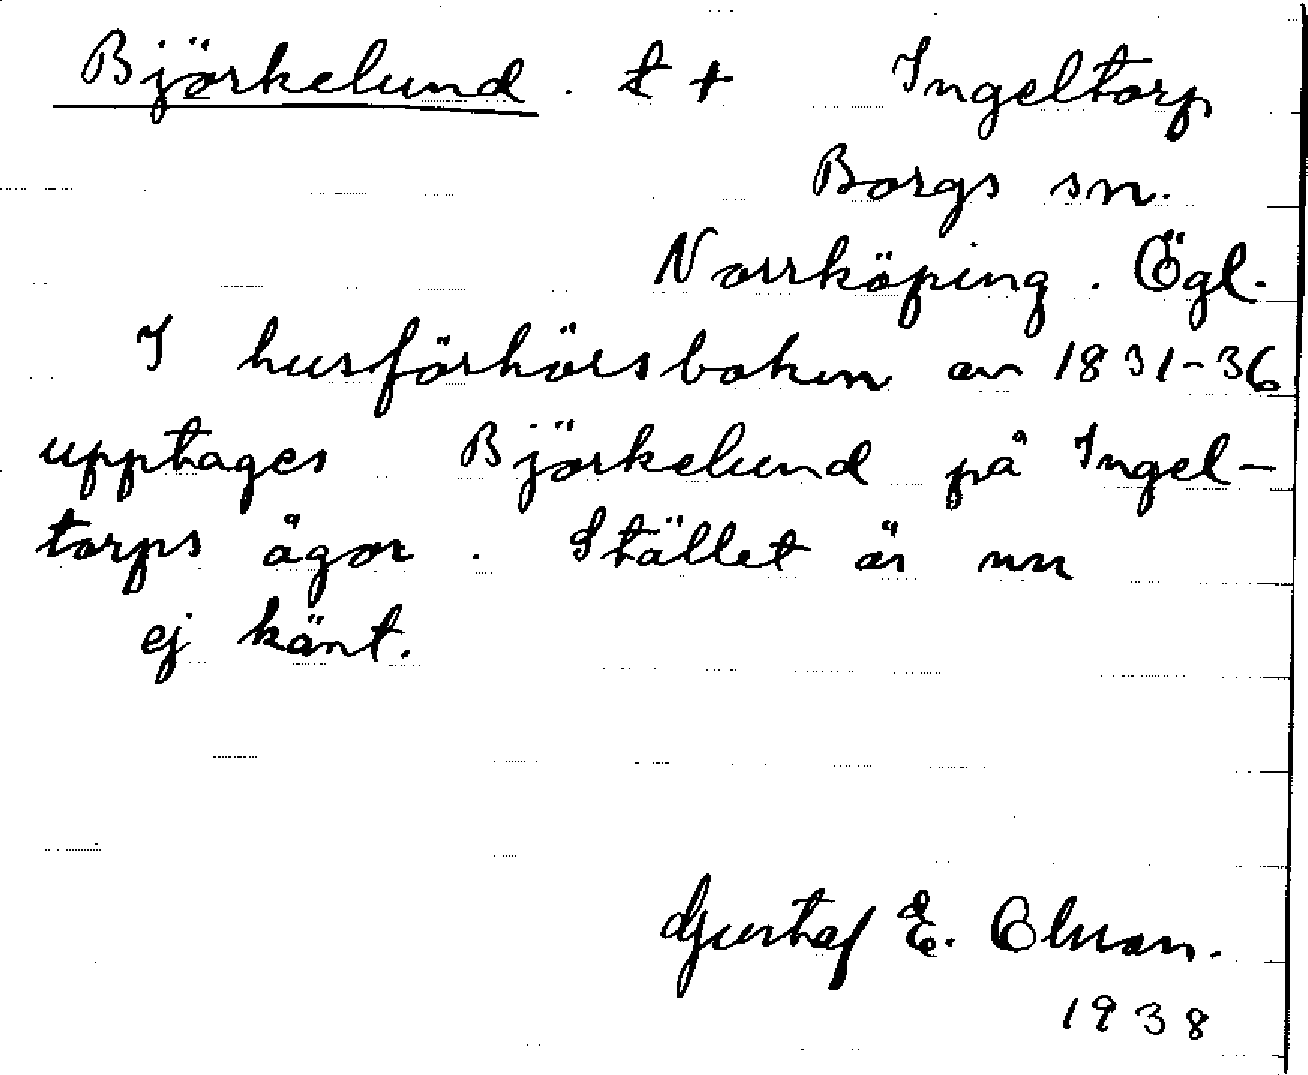 Björkelund. t + Ingeltorp
Borgs sn.
Norrköping. Ögl.
I husförhörsboken av 1831-36
upptages Björkelund på Ingel-
torps ägor. Stället är nu
ej känt.
Gustaf E. Olsson.
1938